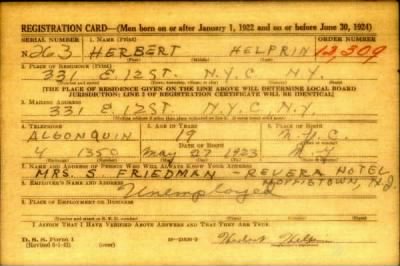 REGISTRATION CARD—(Men born on or after January 1, 1922 and on or before June 30, 1924)
SERIAL NUMBER 1. NAME (Print) ORDER NUMBER
N 263 HERBERT HELPRIN 12,309
(First) (Middle) (Last)
2. PLACE OF RESIDENCE (Print)
331 E 12 ST. N.Y.C. N.Y.
[THE PLACE OF RESIDENCE GIVEN ON THE LINE ABOVE WILL DETERMINE LOCAL BOARD
JURISDICTION; LINE 2 OF REGISTRATION CERTIFICATE WILL BE IDENTICAL]
3. MAILING ADDRESS
331 E. 12 ST. N.Y.C. N.Y.
4. TELEPHONE 5. AGE IN YEARS 6. PLACE OF BIRTH
ALGONQUIN 19 N.Y.C.
DATE OF BIRTH
4 1350 May 27 1923 N.Y.
7. NAME AND ADDRESS OF PERSON WHO WILL ALWAYS KNOW YOUR ADDRESS
MRS. S. FRIEDMAN - REVERA HOTEL
8. EMPLOYER'S NAME AND ADDRESS
Unemployed
9. PLACE OF EMPLOYMENT OR BUSINESS
I AFFIRM THAT I HAVE VERIFIED ABOVE ANSWERS AND THAT THEY ARE TRUE.
D. S. S. Form 1
Herbert Helprin